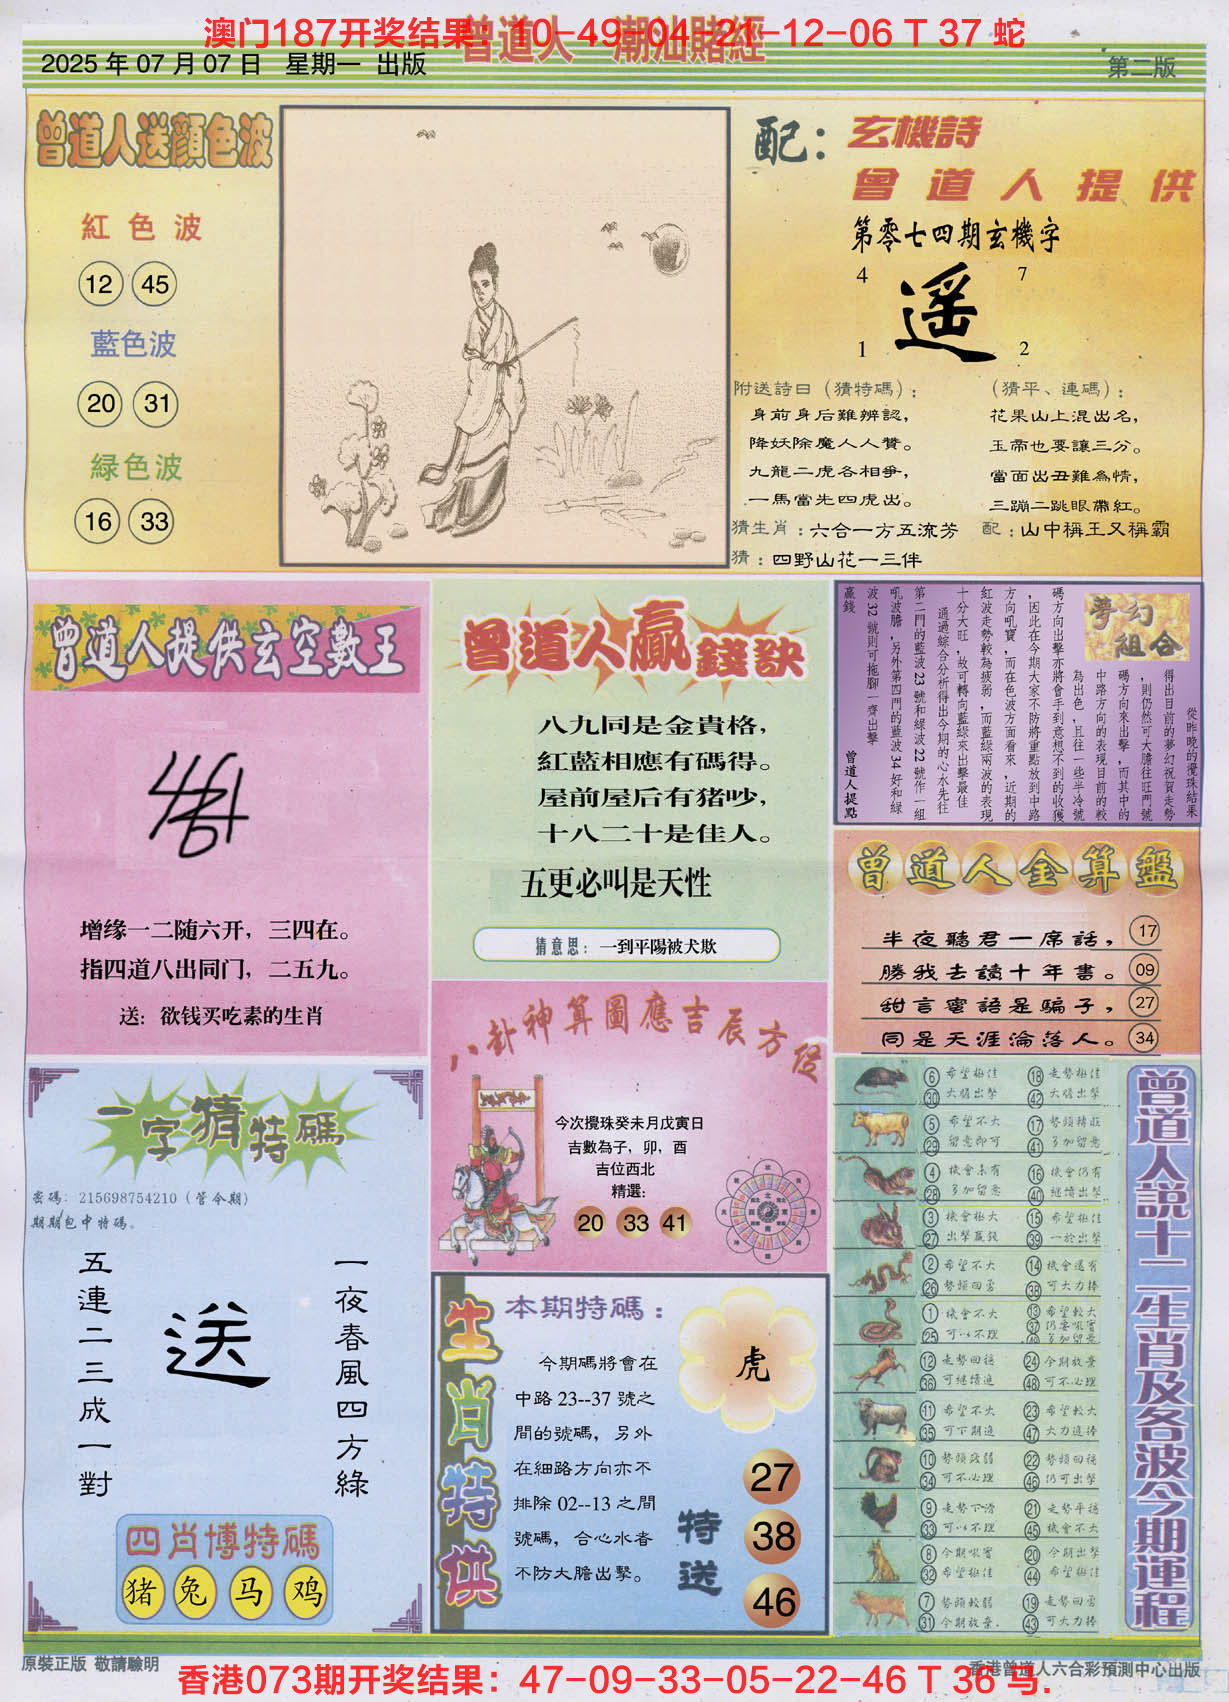 澳门187开奖结果：10-49-04-21-12-06 T 37 蛇
曾道人 潮汕賭經
2025 年 07 月 07 日 星期一 出版
第二版
曾道人送顔色波
紅色波
12 45
藍色波
20 31
緑色波
16 33
配：玄機詩
曾道人提供
第零七四期玄機字
4 7
遥
1 2
附送詩曰（猜特碼）：
身前身后難辨認，
降妖除魔人人贊。
九龍二虎各相爭，
一馬當先四虎出。
（猜平、連碼）：
花果山上混出名，
玉帝也要讓三分。
當面出丑難為情，
三蹦二跳眼帶紅。
猜生肖：六合一方五流芳
配：山中稱王又稱霸
猜：四野山花一三伴
曾道人提供玄空數王
增缘一二随六开，三四在。
指四道八出同门，二五九。
送：欲钱买吃素的生肖
曾道人贏錢訣
八九同是金貴格，
紅藍相應有碼得。
屋前屋后有猪吵，
十八二十是佳人。
五更必叫是天性
猜意思：一到平陽被犬欺
夢幻組合
從昨晚的攪珠結果
得出目前的夢幻祝賀走勢
，則仍然可大膽往旺門號
碼方向來出擊，而其中的
中路方向的表現目前的較
為出色，且往一些半冷號
碼方向出擊亦將會手到意想不到的收獲
，因此在今期大家不防將重點放到中路
方向吼寶，而在色波方面看來，近期的
紅波走勢較為疲弱，而藍綠兩波的表現
十分大旺，故可轉向藍綠來出擊最佳
通過綜合分析得出今期的心水先往
第二門的藍波 23 號和綠波 22 號作一組
吼波膽，另外第四門的藍波 34 好和綠
波 32 號則可拖腳一齊出擊
贏錢
曾道人提點
曾道人金算盤
半夜聽君一席話， 17
勝我去讀十年書。 09
甜言蜜語是騙子， 27
同是天涯淪落人。 34
一字猜特碼
密碼：215698754210（管令期）
期期包中特碼。
一夜春風四方綠
送
五連二三成一對
四肖博特碼
猪 兔 马 鸡
八卦神算圖應吉辰方位
今次攪珠癸未月戊寅日
吉數為子，卯，酉
吉位西北
精選：
20 33 41
生肖特供
本期特碼：
虎
今期碼將會在
中路 23--37 號之
間的號碼，另外
在細路方向亦不
排除 02--13 之間
號碼，合心水者
不防大膽出擊。
特送
27
38
46
曾道人説十二生肖及各波今期運程
6 希望極佳 18 走勢極佳
30 大膽出擊 42 大膽出擊
5 希望不大 17 勢頭轉旺
29 留意即可 41 多加留意
4 機會未有 16 機會仍有
28 多加留意 40 繼續出擊
3 機會極大 15 希望極佳
27 出擊贏錢 39 一於出擊
2 希望不大 14 機會還有
26 勢頭回勇 38 可大力捧
1 機會不大 13 希望較大
25 可以不理 37
12 走勢回穩 24 今期放棄
36 可繼續追 48 可不必理
11 希望不大 23 希望較大
35 可下期追 47 大力追捧
10 勢頭疲弱 22 勢頭回穩
34 可不必理 46 仍可出擊
9 走勢下滑 21 走勢平穩
33 可以不理 45 機會不大
8 今期吼寶 20 今期出擊
32 希望極佳 44 希望極佳
7 勢頭較弱 19 走勢回勇
31 今期放棄. 43 可大力捧
原裝正版 敬請驗明
香港曾道人六合彩預測中心出版
香港073期开奖结果：47-09-33-05-22-46 T 36 马.